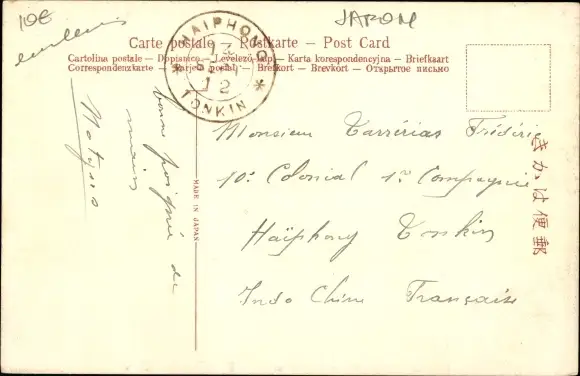 10€
JAPON
Carte postale — Postkarte — Post Card
Cartolina postale — Dopisnice — Levelező-lap — Karta korespondencyjna — Briefkaart
Correspondenzkarte — Tarjeta postal — Brefkort — Brevkort — Открытое письмо
HAIPHONG
13
12
TONKIN
bonne poignée de
main
MADE IN JAPAN
Monsieur Carrérias Frédéric
10e Colonial 1re Compagnie
Haïphong Tonkin
Indo Chine Française
きかは便郵